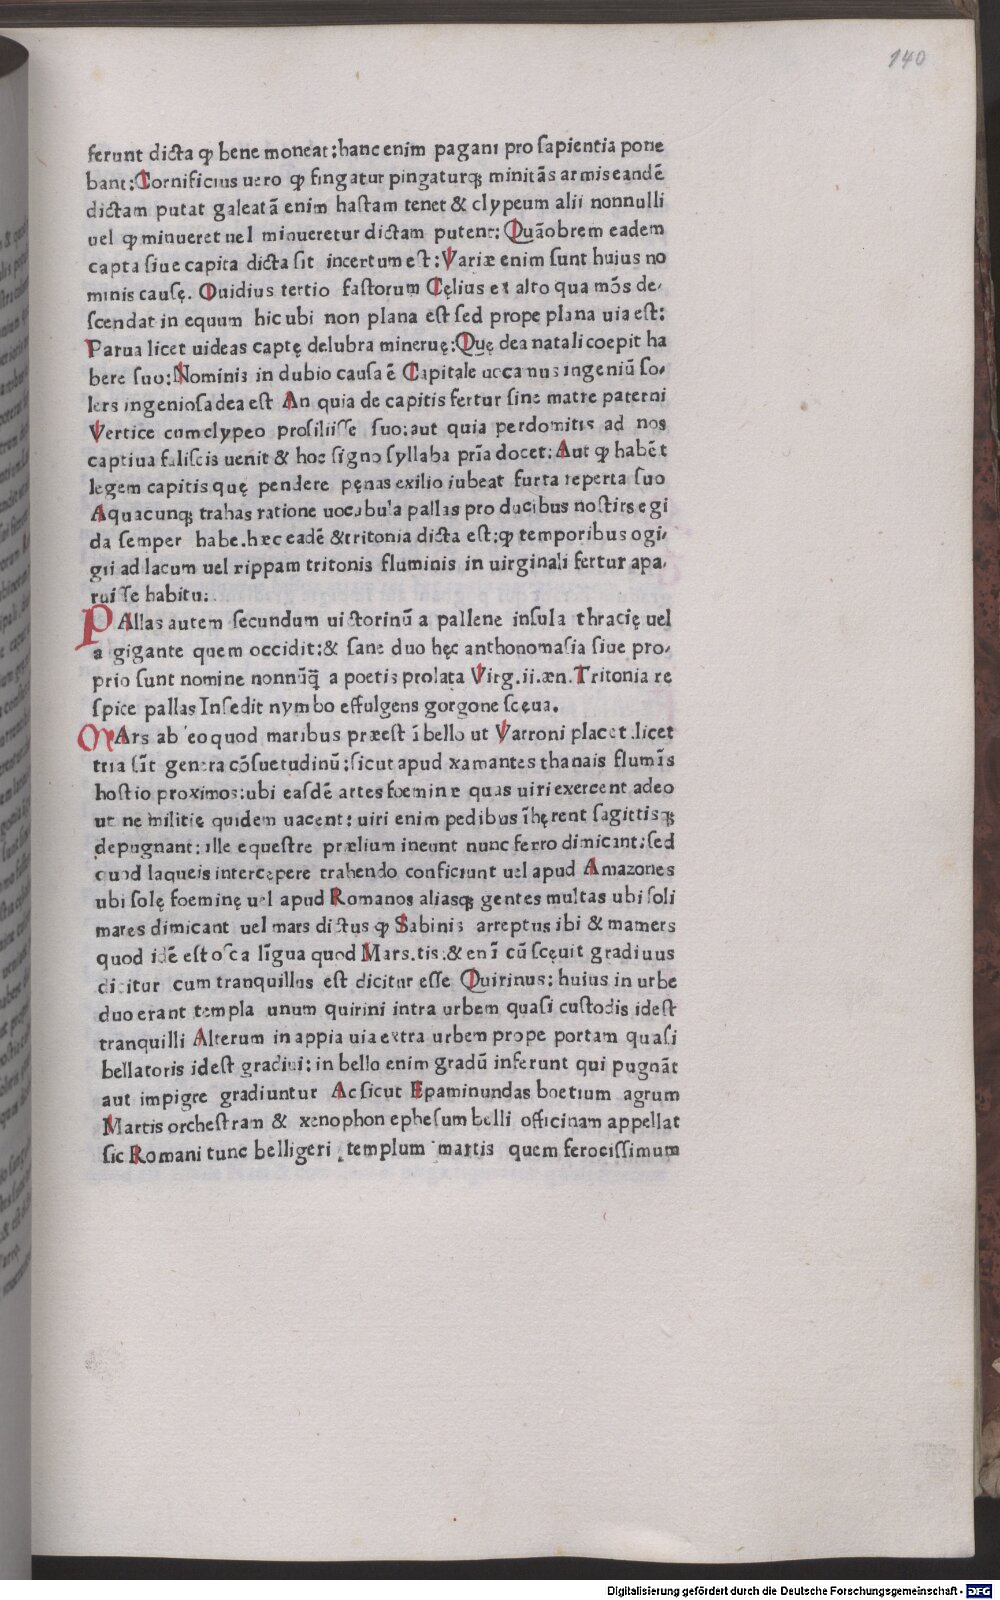 140
ferunt dicta ꝙ bene moneat:hanc enim pagani pro sapientia pone
bant:Cornificius uero ꝙ fingatur pingaturqꝫ minitãs armiseandẽ
dictam putat galeatã enim hastam tenet & clypeum alii nonnulli
uel ꝙ minueret uel minueretur dictam putent: Quãobrem eadem
capta siue capita dicta sit incertum est: Variæ enim sunt huius no
minis causę. Ouidius tertio fastorum Cęlius ex alto qua mõs de/
scendat in equum hic ubi non plana est sed prope plana uia est:
Parua licet uideas captę delubra mineruę:Quę dea natali coepit ha
bere suo:Nominis in dubio causa ẽ Capitale uocamus ingeniũ so/
lers ingeniosa dea est An quia de capitis fertur sine matre paterni
Vertice cum clypeo prosiliisse suo:aut quia perdomitis ad nos
captiua faliscis uenit & hoc signo syllaba prĩa docet: Aut ꝙ habẽt
legem capitis quę pendere pęnas exilio iubeat furta reperta suo
Aquacunqꝫ trahas ratione uocabula pallas pro ducibus nostirs egi
da semper habe.hæc eadẽ &tritonia dicta est:ꝙ temporibus ogi/
gii ad lacum uel rippam tritonis fluminis in uirginali fertur apa/
ruisse habitu:
PAllas autem secundum uictorinũ a pallene insula thracię uel
a gigante quem occidit:& sane duo hęc anthonomasia siue pro/
prio sunt nomine nonnũq̃ a poetis prolata Virg.ii.æn.Tritonia re
spice pallas Insedit nymbo effulgens gorgone scęua.
MArs ab eo quod maribus præest ĩ bello ut Varroni placet.licet
tria sĩt genera cõsuetudinũ:sicut apud xamantes thanais flumĩs
hostio proximos:ubi easdẽ artes foeminæ quas uiri exercent adeo
ut ne militię quidem uacent: uiri enim pedibus ĩhęrent sagittisqꝫ
depugnant: ille equestre prælium ineunt nunc ferro dimicant:sed
quod laqueis intercępere trahendo conficiunt uel apud Amazones
ubi solę foeminę uel apud Romanos aliasqꝫ gentes multas ubi soli
mares dimicant uel mars dictus ꝙ Sabinis arreptus ibi & mamers
quod idẽ est osca lĩgua quod Mars.tis:& enĩ cũ scęuit gradiuus
dicitur cum tranquillus est dicitur esse Quirinus: huius in urbe
duo erant templa unum quirini intra urbem quasi custodis idest
tranquilli Alterum in appia uia extra urbem prope portam quasi
bellatoris idest gradiui: in bello enim gradũ inferunt qui pugnãt
aut impigre gradiuntur Ac sicut Epaminundas boetium agrum
Martis orchestram & xenophon ephesum belli officinam appellat
sic Romani tunc belligeri templum martis quem ferocissimum
Digitalisierung gefördert durch die Deutsche Forschungsgemeinschaft - DFG